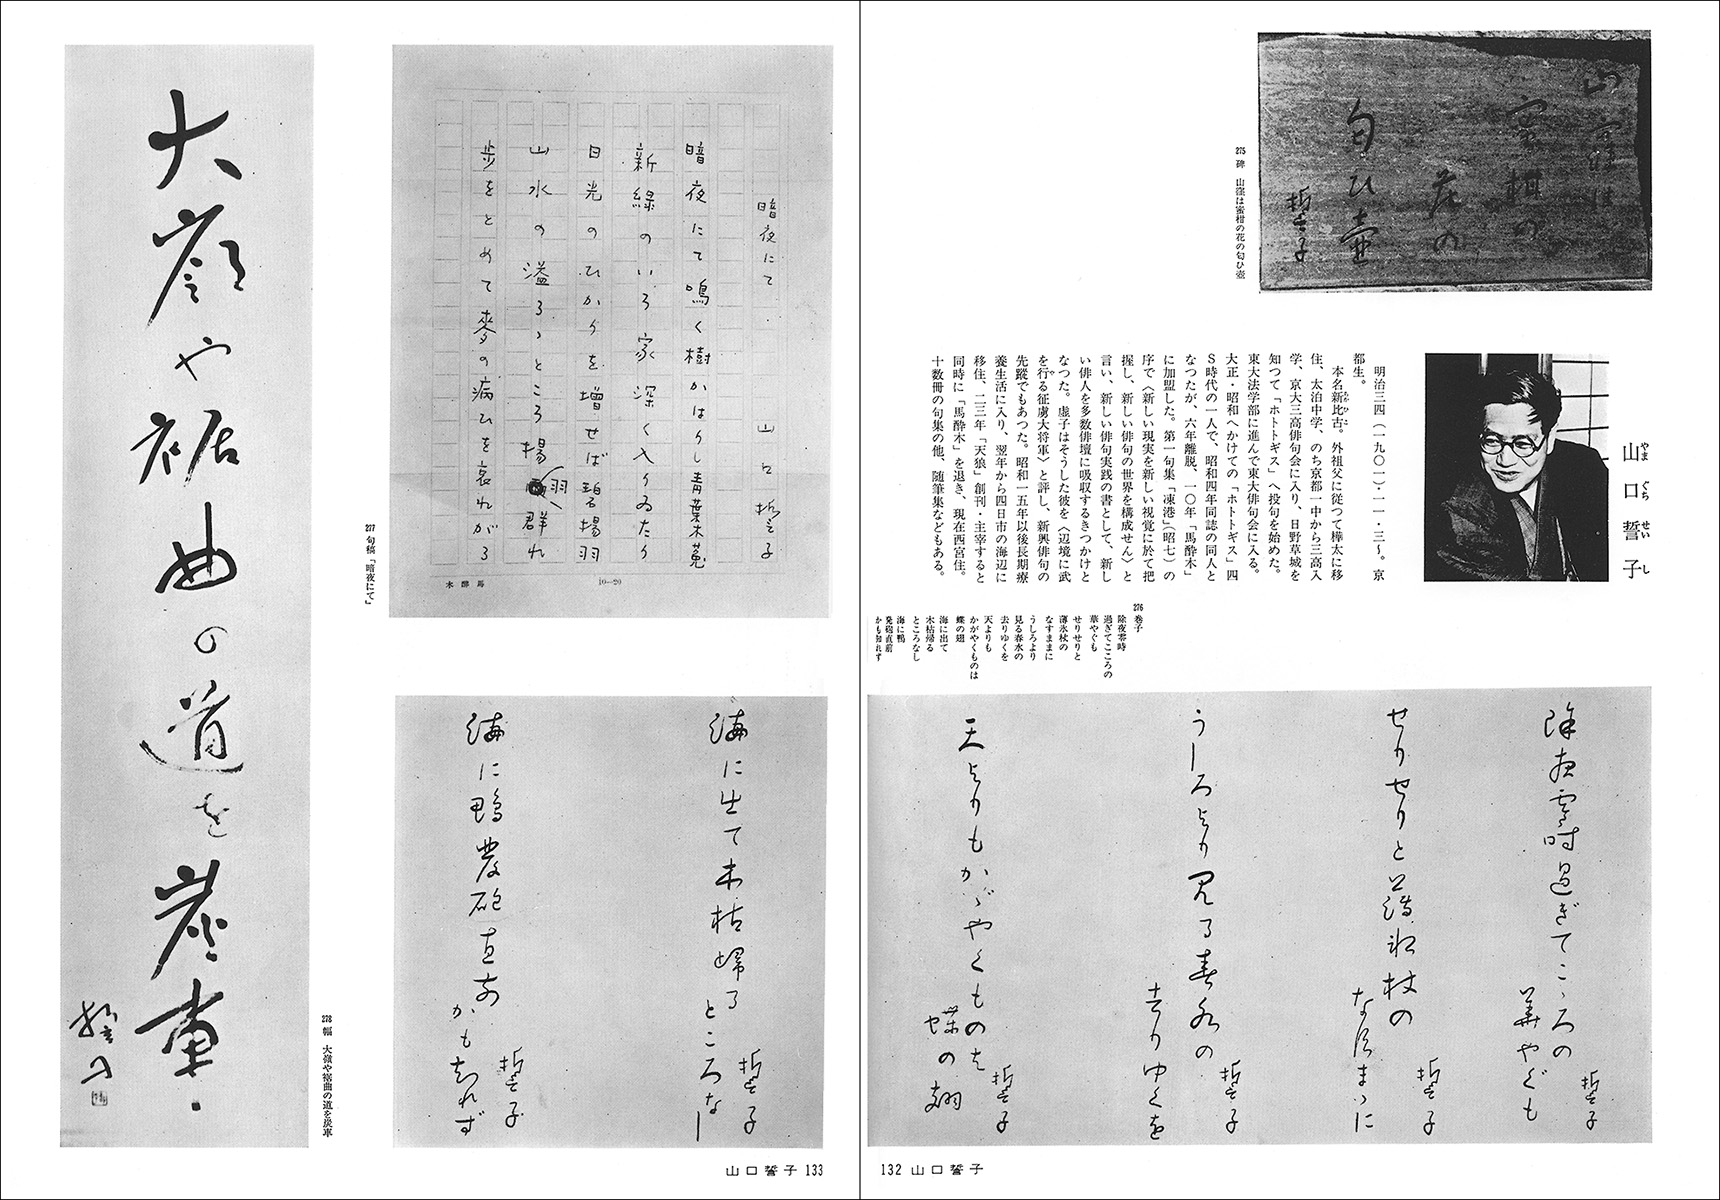 山窪は
蜜柑の
花の
匂ひ壷
誓子
275 碑　山窪は蜜柑の花の匂ひ壷
山口誓子
やま ぐち せい し
明治三四(一九〇一)・一一・三〜。京
都生。
本名新比古。外祖父に従つて樺太に移
住、太泊中学、のち京都一中から三高入
学、京大三高俳句会に入り、日野草城を
知つて「ホトトギス」へ投句を始めた。
東大法学部に進んで東大俳句会に入る。
大正・昭和へかけての「ホトトギス」四
S時代の一人で、昭和四年同誌の同人と
なつたが、六年離脱、一〇年「馬酔木」
に加盟した。第一句集「凍港」(昭七)の
序で〈新しい現実を新しい視覚に於て把
握し、新しい俳句の世界を構成せん〉と
言い、新しい俳句実践の書として、新し
い俳人を多数俳壇に吸収するきつかけと
なつた。虚子はそうした彼を〈辺境に武
を行る征虜大将軍〉と評し、新興俳句の
先蹤でもあつた。昭和一五年以後長期療
養生活に入り、翌年から四日市の海辺に
移住、二三年「天狼」創刊・主宰すると
同時に「馬酔木」を退き、現在西宮住。
十数冊の句集の他、随筆集などもある。
276 巻子
除夜零時
過ぎてこころの
華やぐも
せりせりと
薄氷杖の
なすままに
うしろより
見る春水の
去りゆくを
天よりも
かがやくものは
蝶の翅
海に出て
木枯帰る
ところなし
海に鴨
発砲直前
かも知れず
除夜零時過ぎてこゝろの
華やぐも
誓子
せりせりと薄氷杖の
なすまゝに
誓子
うしろより見る春水の
去りゆくを
誓子
天よりもかゞやくものは
蝶の翅
誓子
132 山口誓子
暗夜にて
山口誓子
暗夜にて鳴く樹かはりし青葉木菟
新緑のいろ家深く入りゐたり
日光のひかりを増せば碧揚羽
山水の溢るゝところ揚羽群れ
歩をとめて麥の病ひを哀れがる
10—20
馬酔木
277 句稿「暗夜にて」
海に出て木枯帰る
ところなし
誓子
海に鴨発砲直前
かも知れず
誓子
大嶺や裾曲の道を炭車
誓子
278 幅　大嶺や裾曲の道を炭車
山口誓子 133